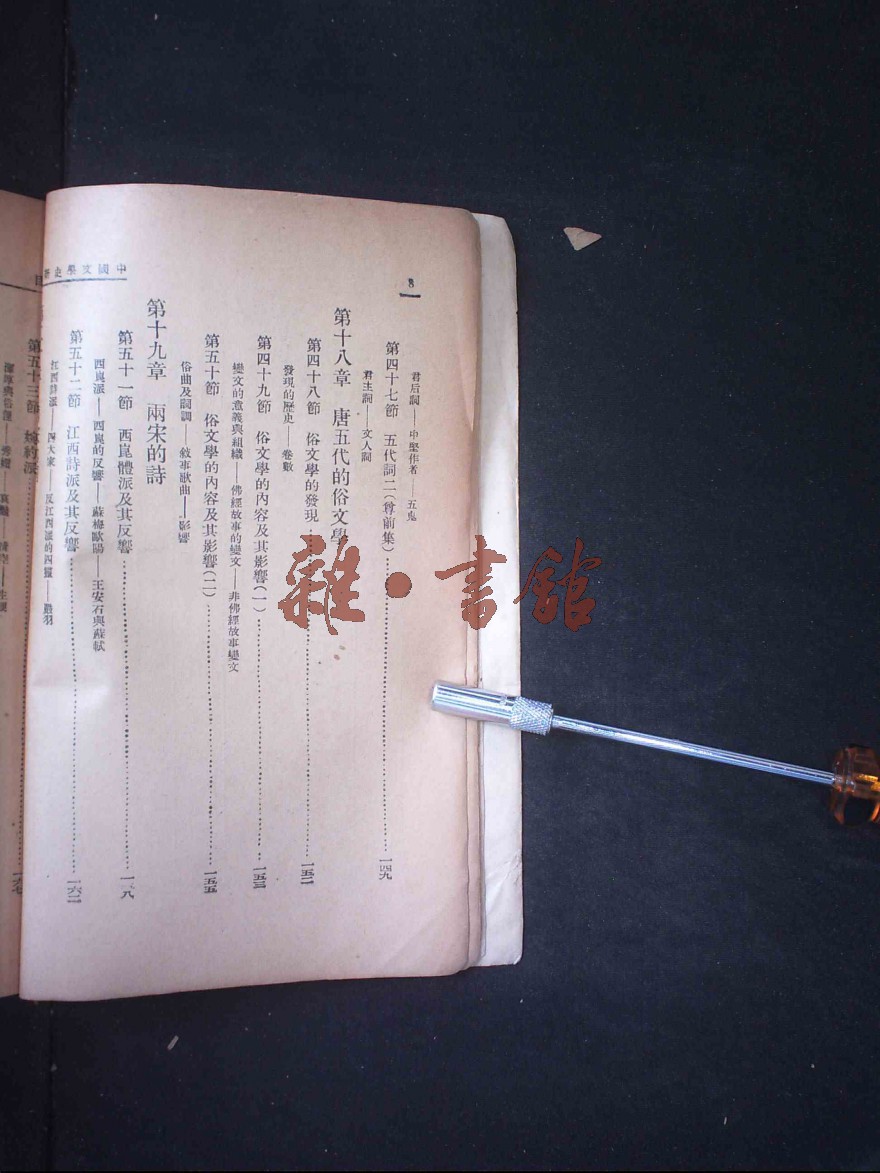 中國文學史新
8
君后詞——中堅作者——五鬼
第四十七節　五代詞二(尊前集)……一四九
君主詞——文人詞
第十八章　唐五代的俗文學
第四十八節　俗文學的發現……一五二
發現的歷史——卷數
第四十九節　俗文學的內容及其影響(一)……一五三
變文的意義與組織——佛經故事的變文——非佛經故事變文
第五十節　俗文學的內容及其影響(二)……一五五
俗曲及詞調——敘事歌曲——影響
第十九章　兩宋的詩
第五十一節　西崑體派及其反響
西崑派——西崑的反響——蘇梅歐陽——王安石與蘇軾
第五十二節　江西詩派及其反響……一六二
江西詩派——四大家——反江西派的四靈——嚴羽
第五十三節　婉約派
雜·書館